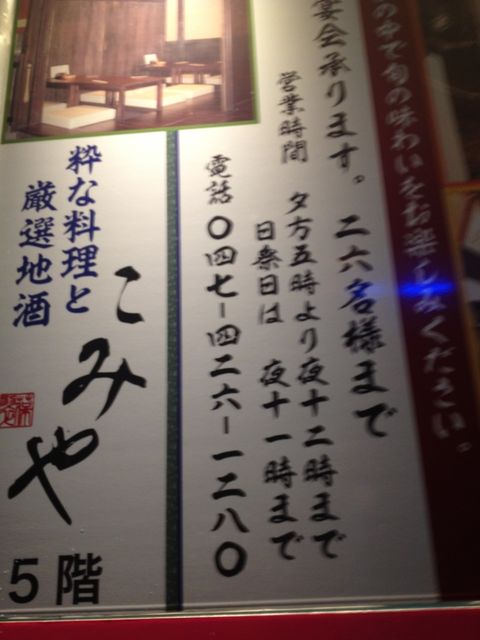 の中で旬の味わいをお楽しみください。
宴会承ります。二六名様まで
営業時間 夕方五時より夜十二時まで
日祭日は 夜十一時まで
電話 〇四七-四二六-一二八〇
粋な料理と
厳選地酒
こみや
5階